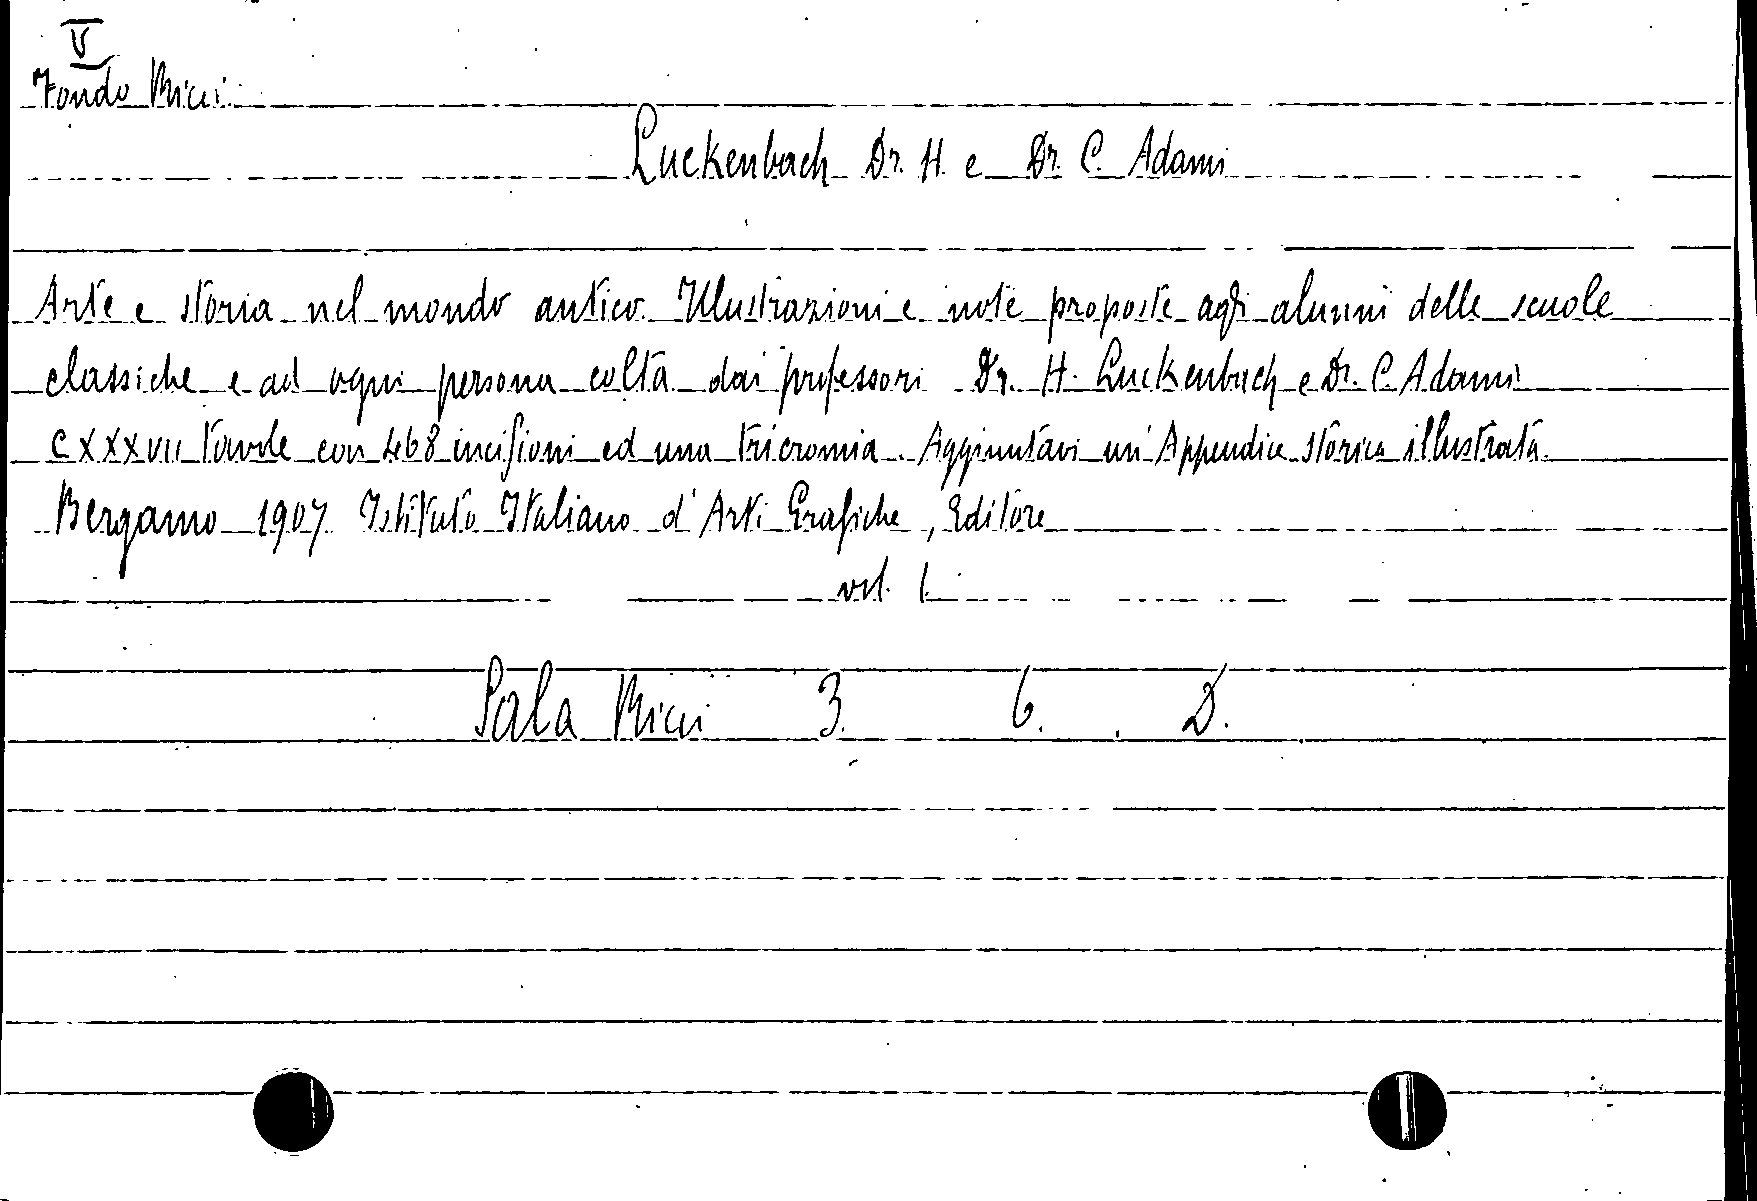 V
Fondo Ricci
Luckenbach Dr. H. e Dr. C. Adami
Arte e storia nel mondo antico. Illustrazioni e note proposte agli alunni delle scuole
classiche e ad ogni persona colta dai professori Dr. H. Luckenbach e Dr. C. Adami
CXXXVII tavole con 468 incisioni ed una tricromia. Aggiuntavi un'Appendice storica illustrata.
Bergamo 1907 Istituto Italiano d'Arti Grafiche, Editore
vol. 1.
Sala Ricci 3. 6. D.